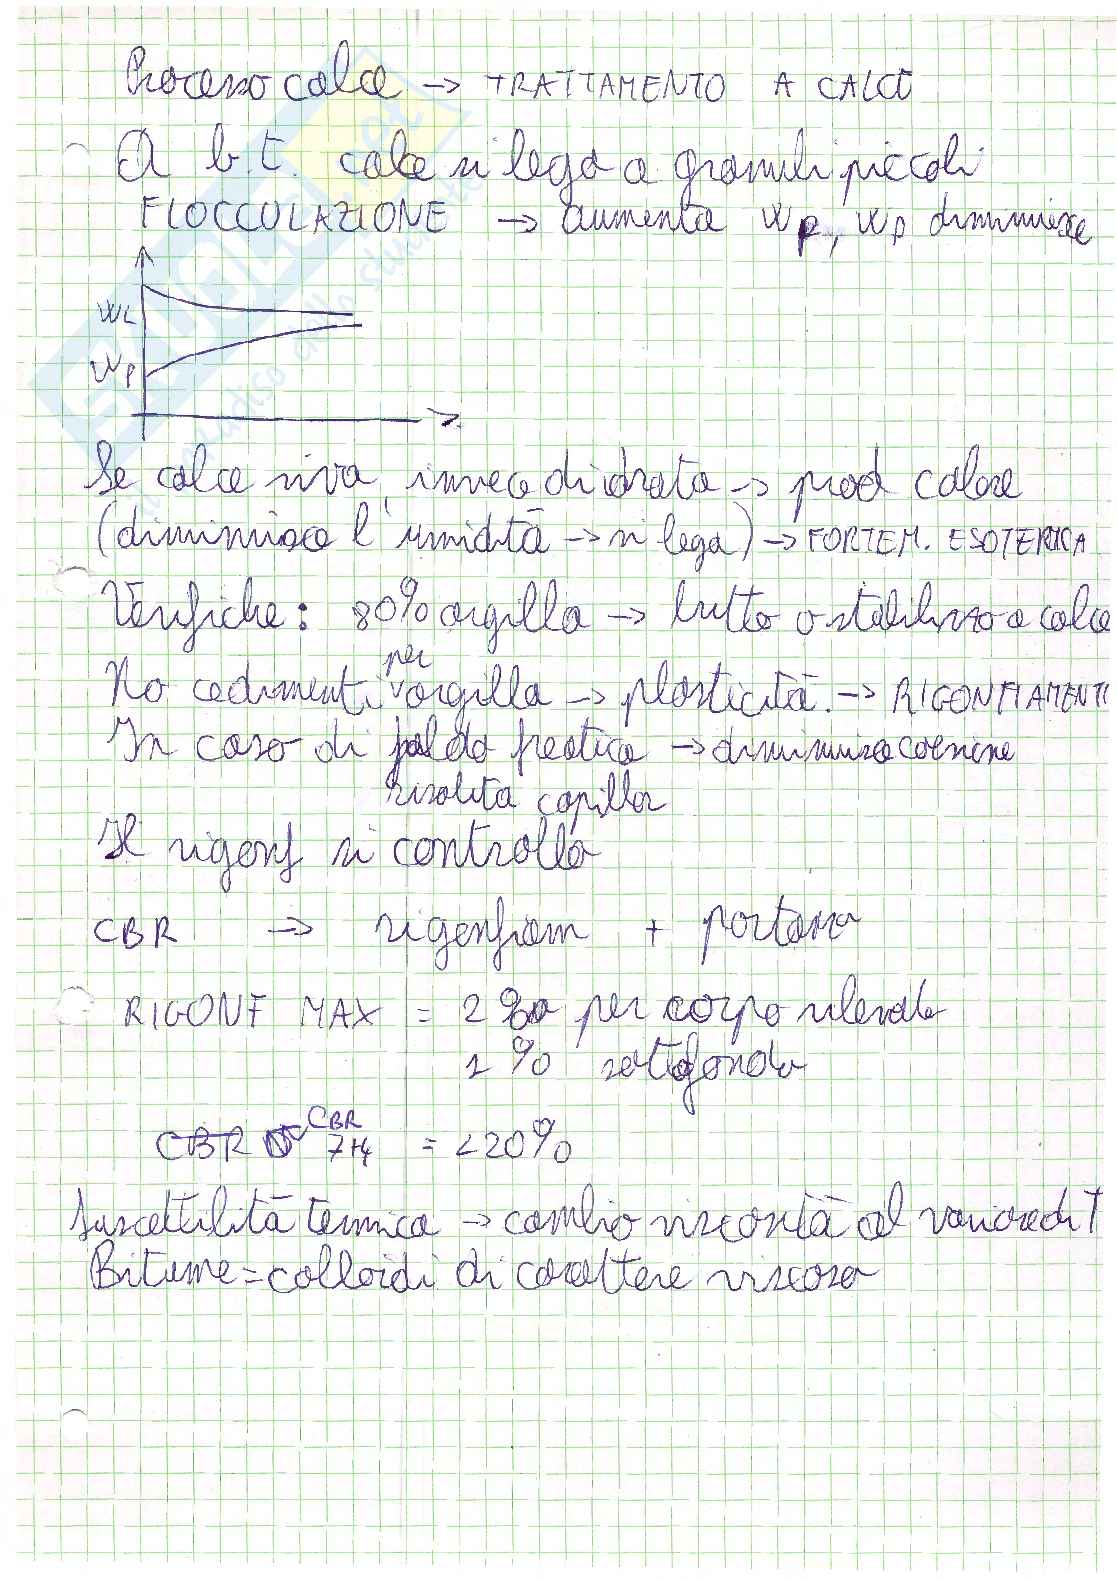 Processo calce → TRATTAMENTO A CALCE
A b.t. calce si lega a granuli piccoli
FLOCCULAZIONE → aumenta wp, wp diminuisce
WL
WP
Se calce viva, invece di idrata → prod calore
(diminuisce l'umidità → si lega) → FORTEM. ESOTERICA
Verifiche: 80% argilla → tutto o stabilizzo a calce
No cedimenti per argilla → plasticità. → RIGONFIAMENTI
In caso di falda freatica → diminuisce coesione
risalita capillar
Il rigonf si controlla
CBR → rigonfiam + portanza
RIGONF MAX = 2% per corpo rilevato
1% sottofondo
CBR CBR = <20%
Suscettilità termica → cambio viscosità al variare di T
Bitume = colloidi di carattere viscoso